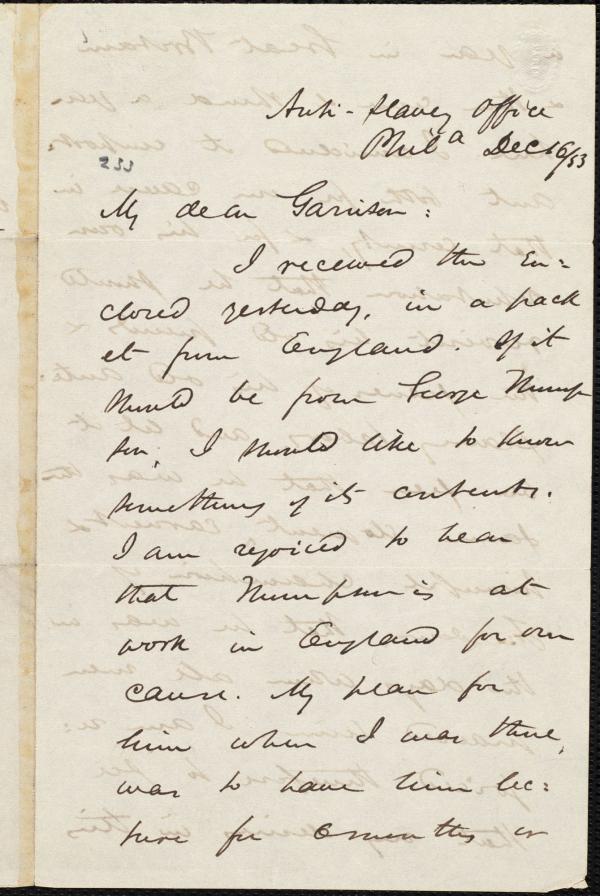 Anti-Slavery Office
Phila Dec 16/53
233
My dear Garrison:
I received the en=
closed yesterday, in a pack
et from England. If it
should be from George Thomp
son, I should like to know
something of its contents.
I am rejoiced to hear
that Thompson is at
work in England for our
cause. My plan for
him when I was there,
was to have him lec=
ture for 6 months or